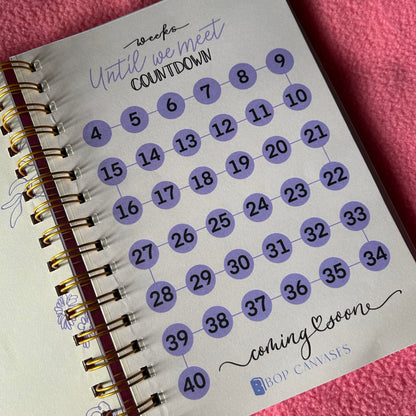 weeks
Until we meet
COUNTDOWN
4 5 6 7 8 9
15 14 13 12 11 10
16 17 18 19 20 21
27 26 25 24 23 22
28 29 30 31 32 33
39 38 37 36 35 34
40
coming soon
BOP CANVASES